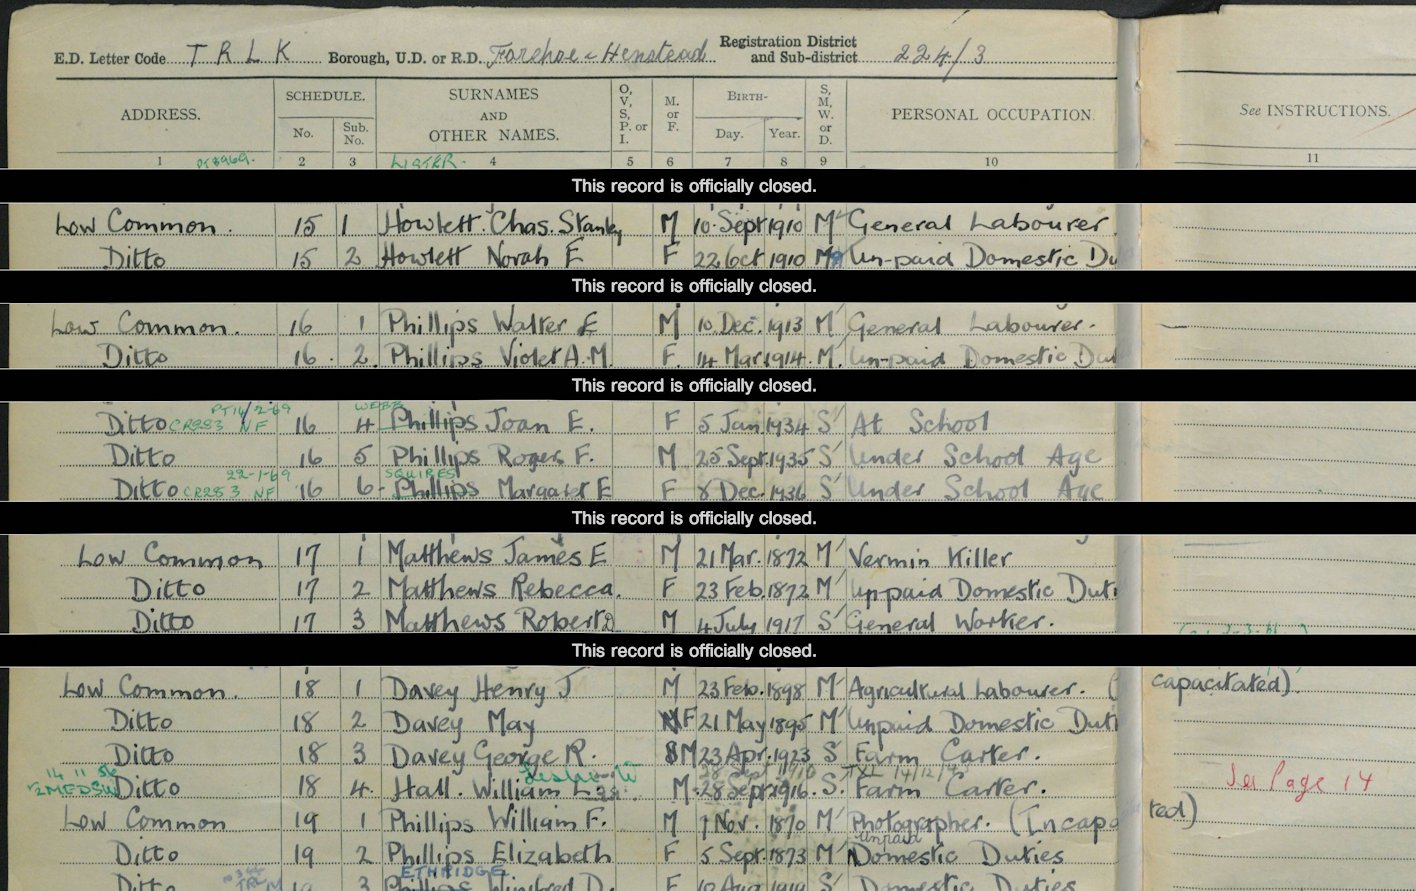 E.D. Letter Code T R L K Borough, U.D. or R.D. Forehoe & Henstead Registration District and Sub-district 224/3
ADDRESS. SCHEDULE. No. Sub. No. SURNAMES AND OTHER NAMES. O, V, S, P. or I. M. or F. BIRTH- Day. Year. S, M, W. or D. PERSONAL OCCUPATION. See INSTRUCTIONS.
1 2 3 4 5 6 7 8 9 10 11
This record is officially closed.
Low Common. 15 1 Howlett. Chas. Stanley M 10 Sept 1910 M General Labourer.
Ditto 15 2 Howlett Norah E F 22 Oct 1910 M Un-paid Domestic Du
This record is officially closed.
Low Common. 16 1 Phillips Walter E M 10 Dec. 1913 M General Labourer.
Ditto 16. 2. Phillips Violet A.M. F. 14 Mar. 1914. M. Un-paid Domestic Dut
This record is officially closed.
WEBB
Ditto CR283 NF 16 4 Phillips Joan E. F 5 Jan 1934 S At School
Ditto 16 5 Phillips Roger F. M 25 Sept. 1935 S Under School Age
22-1-69 SQUIRES
Ditto CR283 NF 16 6 Phillips Margaret E F 8 Dec. 1936 S Under School Age
This record is officially closed.
Low Common 17 1 Matthews James E M 21 Mar. 1872 M Vermin Killer
Ditto 17 2 Matthews Rebecca. F 23 Feb. 1872 M Unpaid Domestic Duti
Ditto 17 3 Matthews Robert D M 4 July 1917 S General Worker.
This record is officially closed.
Low Common. 18 1 Davey Henry J M 23 Feb. 1898 M Agricultural Labourer. ( capacitated)
Ditto 18 2 Davey May F 21 May 1895 M Unpaid Domestic Duti
Ditto 18 3 Davey George R. M 23 Apr. 1923 S Farm Carter.
Ditto 18 4 Hall. William L M 28 Sept 1916. S. Farm Carter. See Page 14
Low Common 19 1 Phillips William F. M 1 Nov. 1870 M Photographer. (Incapa ted)
Unpaid
Ditto 19 2 Phillips Elizabeth F 5 Sept. 1873 M Domestic Duties
ETHRIDGE
Ditto 19 3 Phillips Winifred D. F 10 Aug 1919 S Domestic Duties